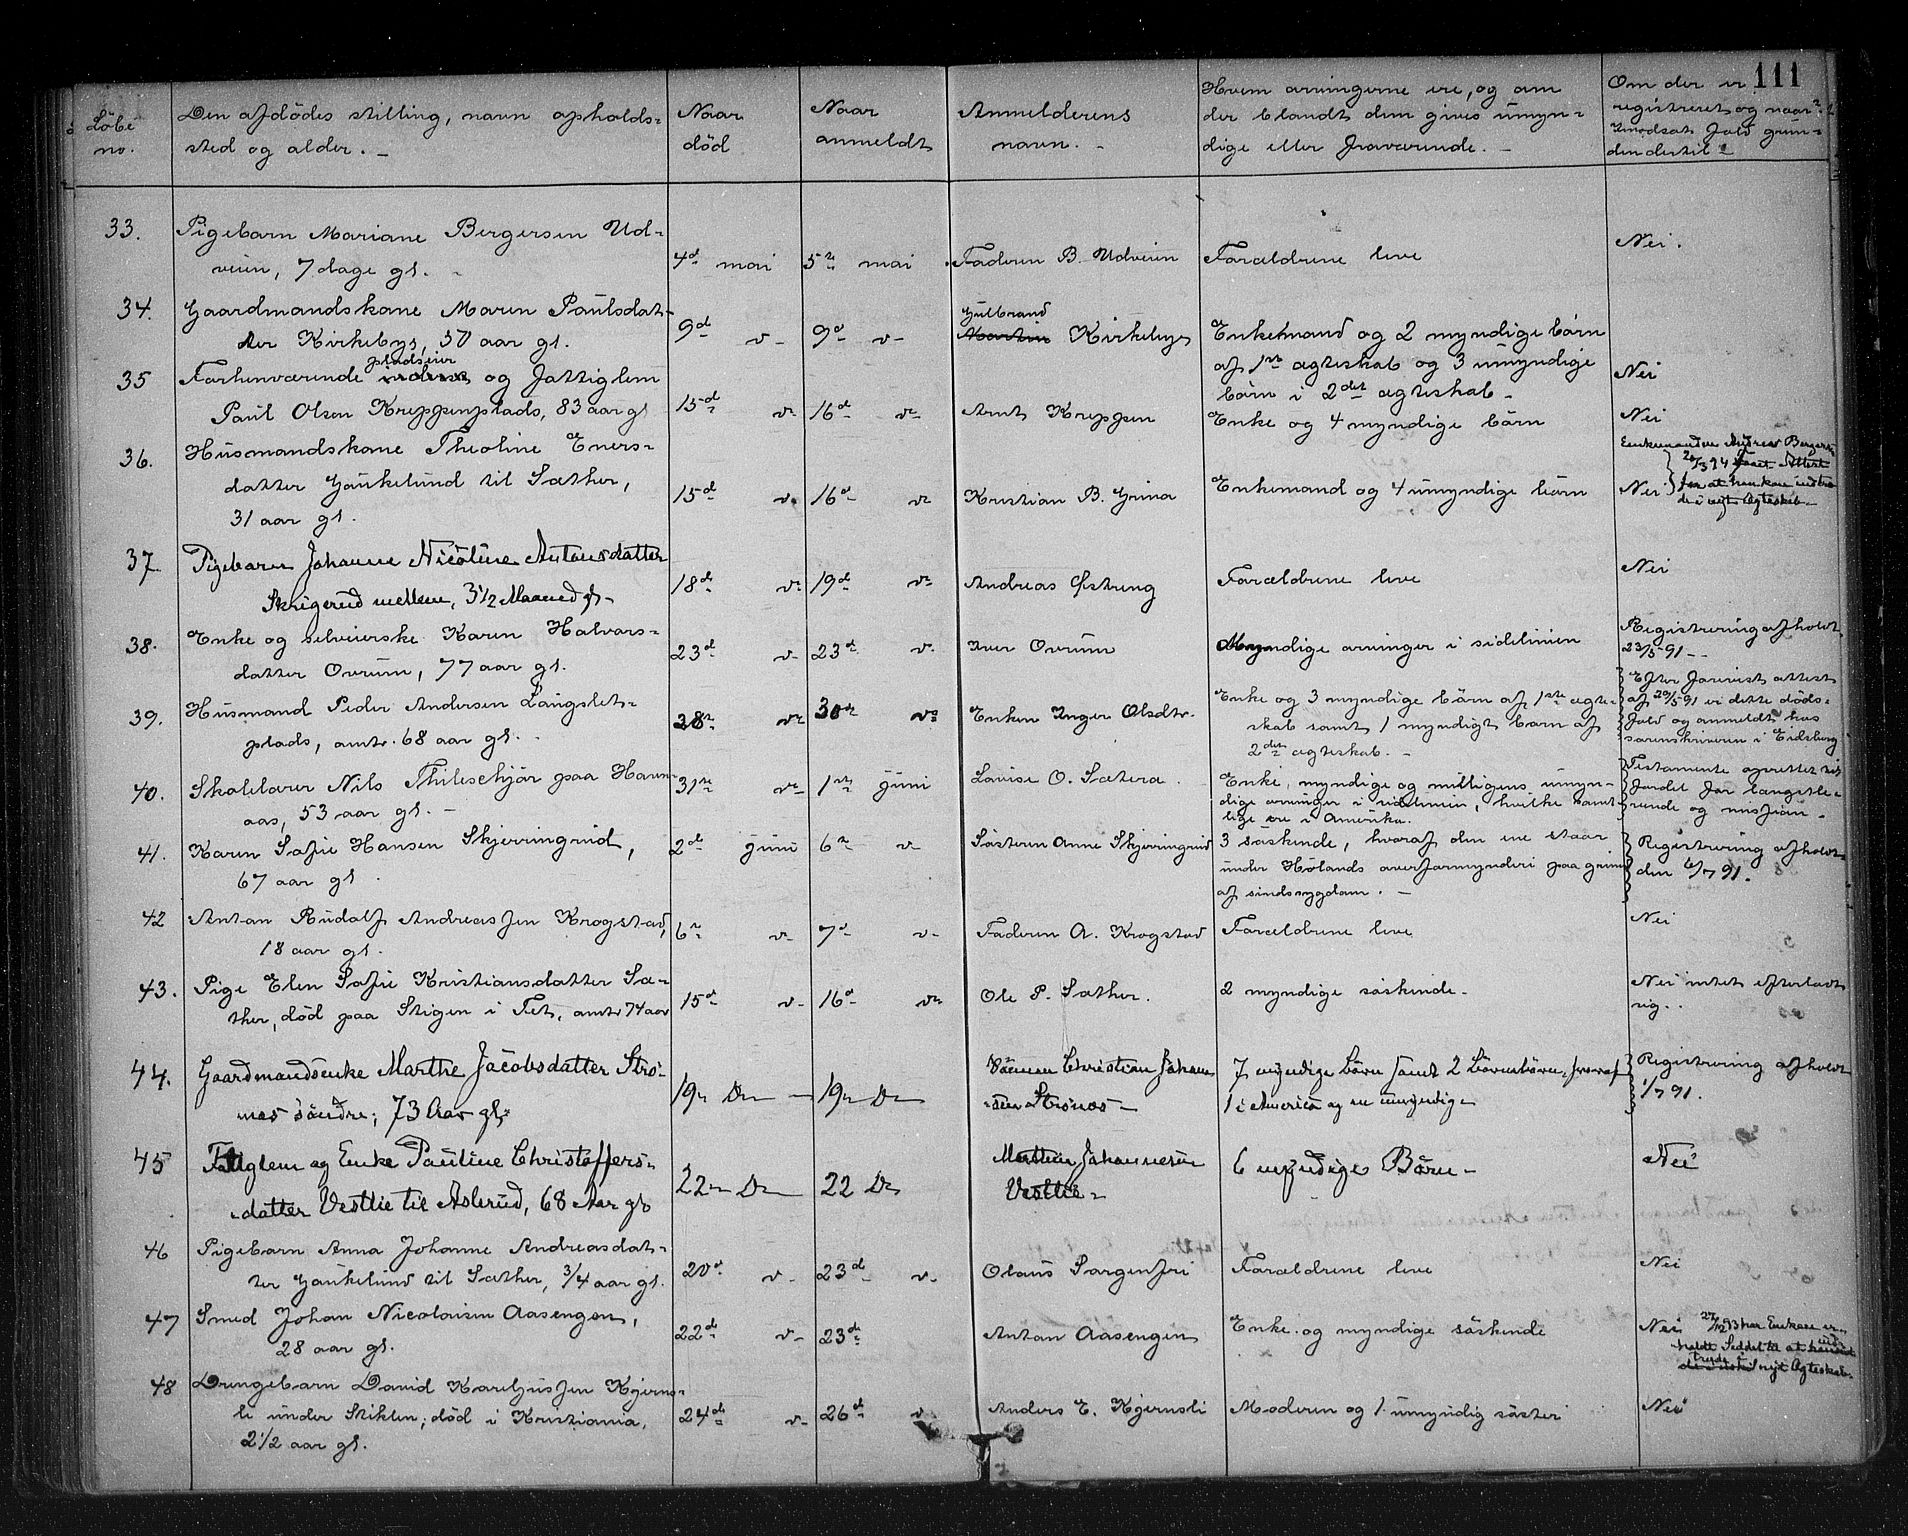 111
Löbe no.
Den afdödes stilling, navn opholds-
sted og alder. -
Naar
död
Naar
anmeldt
Anmelderens
navn. -
Hvem arvingerne ere, og om
der blandt dem gives umyn-
dige eller fraværende. -
Om der er
registreret og naar?
Imodsat fald grun-
den dertil?
33.
Pigebarn Mariane Bergersen Ud-
veien, 7 dage gl. -
4d mai
5te mai
Faderen B. Udveien
Forældrene leve
Nei.
34.
Gaardmandskone Maren Paulsdat-
ter Kirkebys, 50 aar gl.
9d v-
9d v-
Gulbrand
Martin Kirkebye
Enkemand og 2 myndige børn
af 1ste ægteskab og 3 umyndige
børn i 2det ægteskab -
Nei
35
Forhenværende pladseier og Fattiglem
Paul Olsen Kreppenplads, 83 aar gl
15d v-
16d v-
Arnt Kreppen
Enke og 4 myndige børn
Nei
36.
Husmandskone Theoline Eners-
datter Haukelund til Sæther,
31 aar gl.
15d v.
16d v-
Kristian B. Grina
Enkemand og 4 umyndige børn
Nei
Enkemanden Andreas Bergers
20/3 94 faaet Attest
for at han kan indtræ
de i nyt Ægteskab -
37
Pigebarn Johanne Nicoline Antonsdatter
Skrigerud mellem, 3 1/2 Maaned gl-
18d v-
19d v-
Andreas Østreng
Forældrene leve
Nei
38.
Enke og selveierske Karen Halvors-
datter Ovrum, 77 aar gl.
23d v-
23d v.
Iver Ovrum
Myndige arvinger i sidelinien
Registrering afholdt
23/5 91 - -
39.
Husmand Peder Andersen Langslet-
plads, omtr. 68 aar gl. -
28de v-
30te v-
Enken Inger Olsdtr.
Enke og 3 myndige børn af 1ste ægte-
skab samt 1 myndigt barn af
2det ægteskab. -
Efter forevist attest
af 29/5 91 er dette döds-
fald og anmeldt hos
sorenskriveren i Eidsberg
40.
Skolelærer Nils Thileschjör paa Haun-
aas, 53 aar gl. -
31te v-
1ste juni
Lovise O. Sætera.
Enke, myndige og muligens umyn-
dige arvinger i sidelinien, hvilke samt-
lige ere i Amerika.
Testamente oprettet til
fordel for længstle-
vende og misjon. -
41.
Karen Sofie Hansen Skjerringrud,
67 aar gl.
2de juni
6te v-
Søsteren Anne Skjerringrud
3 søskende, hvoraf den ene staar
under Hölands overformynderi paa grund
af sindssygdom. -
Registrering afholdt
den 6/7 91.
42
Anton Rudolf Andreassen Krogstad,
18 aar gl.
6te v-
7d v-
Faderen A. Krogstad
Forældrene leve
Nei
43.
Pige Elen Sofie Kristiansdatter Sæ-
ther, död paa Stigen i Fet, omtr 74 aar
15d v-
16d v-
Ole P. Sæther.
2 myndige søskende -
Nei intet efterladt
sig.
44.
Gaardmandsenke Marthe Jacobsdatter Strö-
mnes søndre, 73 Aar gl.
19n Do -
19n Do
Sönnen Christian Johan-
sen Strönes -
7 myndige Børn samt 2 Børnebørn, hvoraf
1 i America og en umyndige
Registrering afholdt
1/7 91.
45
Fattiglem og Enke Pauline Christoffers-
datter Vestlie til Aslerud, 68 Aar gl
22n Do
22 Do
Mathias Johannesen
Vestlie -
6 myndige Børn -
Nei
46
Pigebarn Anna Johanne Andreasdat-
ter Haukelund til Sæther, 3/4 aar gl.
20d v-
23de v-
Olaus Torgersen
Forældrene leve
Nei
47
Smed Johan Nicolaisen Aasengen,
28 aar gl.
22de v-
23de
Anton Aasengen
Enke og myndige søskende
Nei
27/12 93 har Enken er-
holdt Seddel til at kunne ind
træde i
nyt Ægteskab.
48
Drengebarn David Kareliussen Kjerns-
li under Stiklen; död i Kristiania,
2 1/2 aar gl.
24de v-
26de v-
Anders E. Kjernsli
Moderen og 1 umyndig søster
Nei